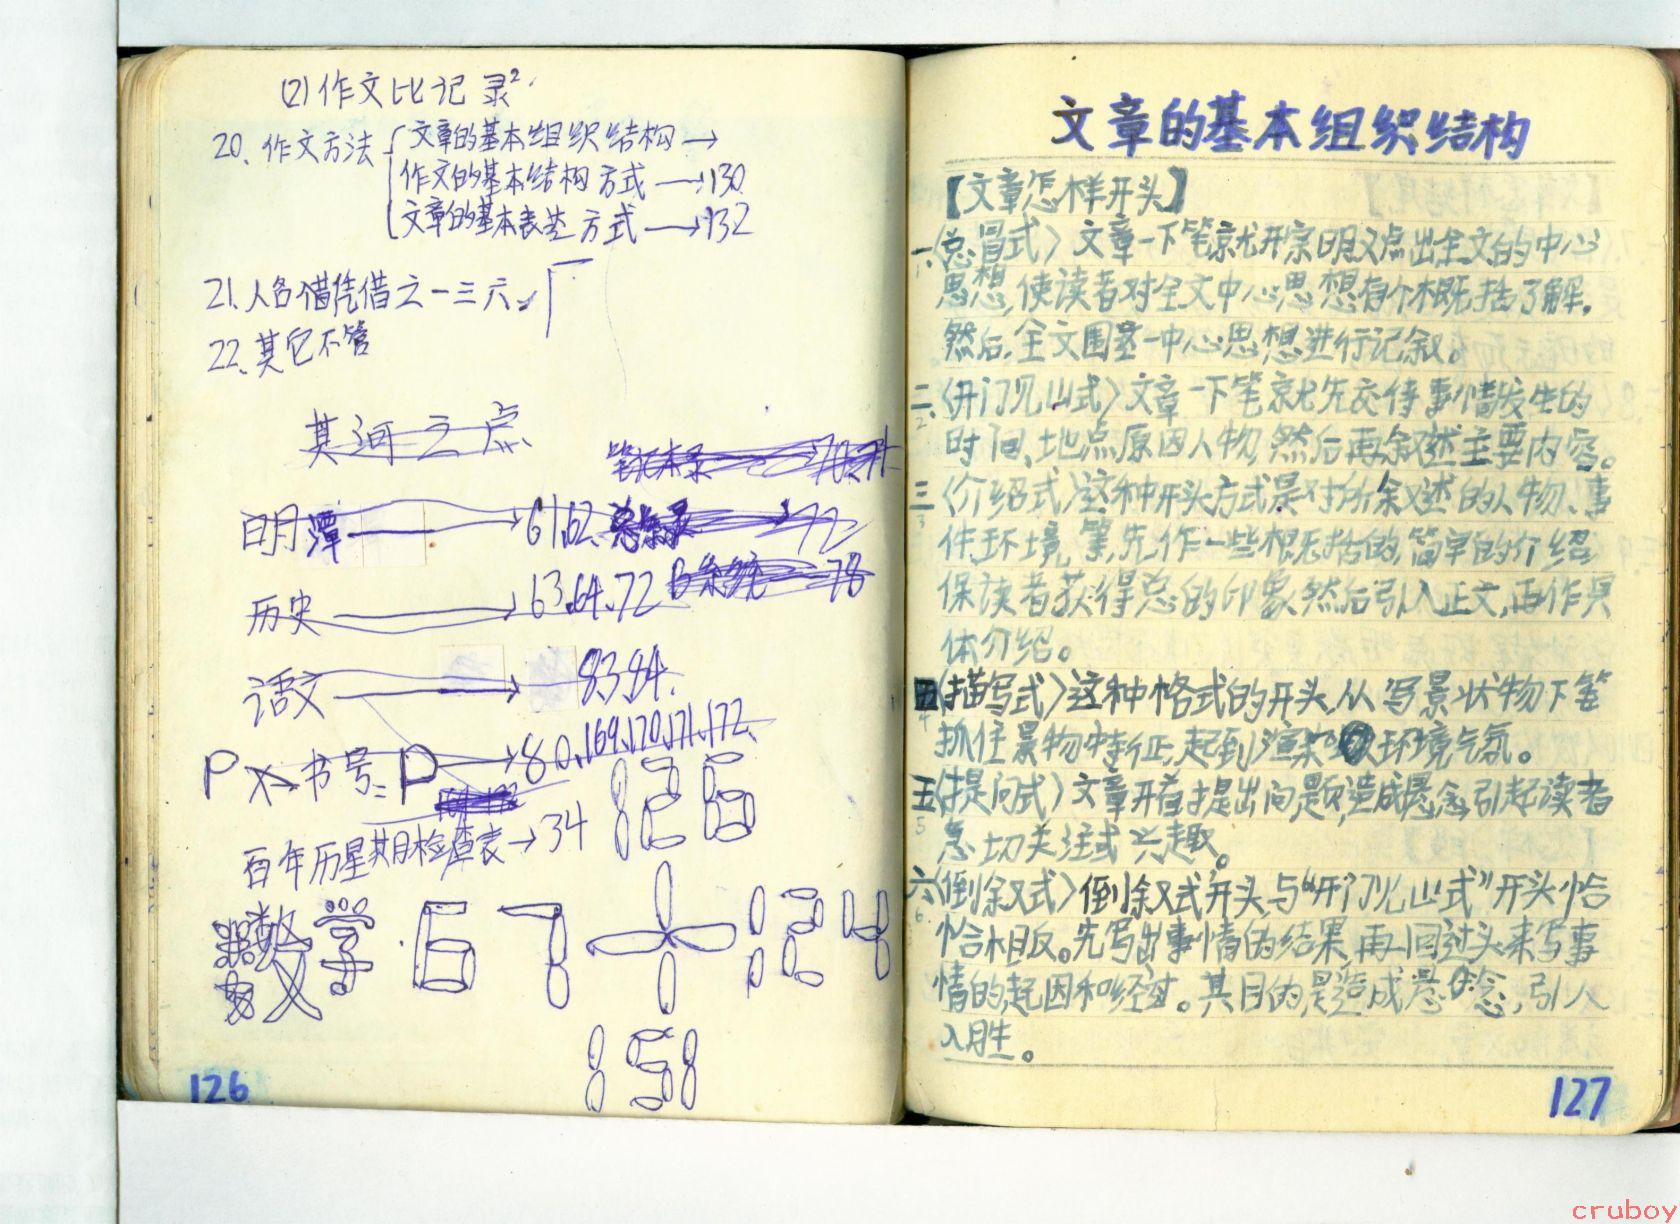 (2)作文比记录²
20、作文方法
文章的基本组织结构→
作文的基本结构方式→130
文章的基本表达方式→132
21、人各借凭借之一三六
22、其它不管
其河之点
笔记本录
明潭→61、62、总集录→72
B系统 78
历史→63、64、72
语文→83、84、
P文书号=P→80、169、170、171、172、
126
百年历星期检查表→34
数学 67+124
151
126
文章的基本组织结构
【文章怎样开头】
一、〈总冒式〉文章一下笔就开宗明义点出全文的中心
思想,使读者对全文中心思想有个概括了解。
然后,全文围垄一中心思想进行记叙。
二、〈开门见山式〉文章一下笔就先交待事情发生的
时间、地点原因人物,然后再叙述主要内容。
三、〈介绍式〉这种开头方式是对所叙述的人物、事
件、环境,等,先作一些概括的,简单的介绍
保读者获得总的印象,然后引入正文,再作具
体介绍。
四〈描写式〉这种格式的开头,从写景状物下笔
抓住景物特征,起到渲染环境气氛。
五〈提问式〉文章开首提出问题,造成悬念,引起读者
急切关注或兴趣。
六〈倒叙式〉倒叙式开头与“开门见山式”开头恰
恰相反。先写出事情的结果,再回过头来写事
情的起因和经过。其目的是造成悬念,引人
入胜。
127
cruboy